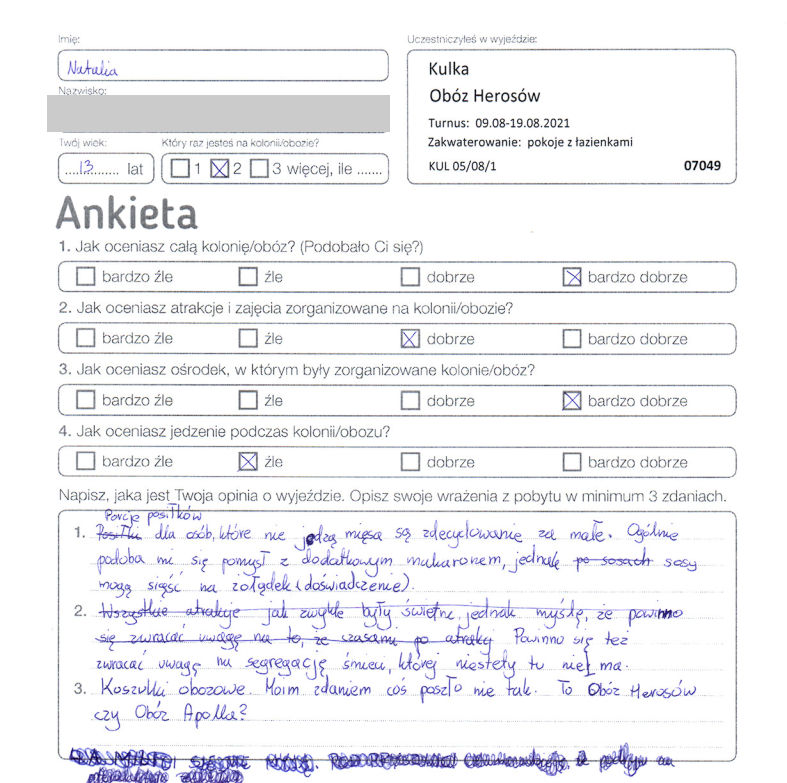 Imię:
Natalia
Nazwisko:
Uczestniczyłeś w wyjeździe:
Kulka
Obóz Herosów
Turnus: 09.08-19.08.2021
Zakwaterowanie: pokoje z łazienkami
KUL 05/08/1 07049
Twój wiek: Który raz jesteś na kolonii/obozie?
....13........ lat 1 2 3 więcej, ile .......
Ankieta
1. Jak oceniasz całą kolonię/obóz? (Podobało Ci się?)
bardzo źle źle dobrze bardzo dobrze
2. Jak oceniasz atrakcje i zajęcia zorganizowane na kolonii/obozie?
bardzo źle źle dobrze bardzo dobrze
3. Jak oceniasz ośrodek, w którym były zorganizowane kolonie/obóz?
bardzo źle źle dobrze bardzo dobrze
4. Jak oceniasz jedzenie podczas kolonii/obozu?
bardzo źle źle dobrze bardzo dobrze
Napisz, jaka jest Twoja opinia o wyjeździe. Opisz swoje wrażenia z pobytu w minimum 3 zdaniach.
Porcje posiłków
1. Posiłki dla osób, które nie jedzą mięsa są zdecydowanie za małe. Ogólnie
podoba mi się pomysł z dodatkowym makaronem, jednak po sosach sosy
mogą siąść na żołądek (doświadczenie).
2. Wszystkie atrakcje jak zwykle były świetne, jednak myślę, że powinno
się zwracać uwagę na to, że czasami po atrakcj Powinno się też
zwracać uwagę na segregację śmieci, której niestety tu nie ma.
3. Koszulki obozowe. Moim zdaniem coś poszło nie tak. To Obóz Herosów
czy Obóz Apolla?